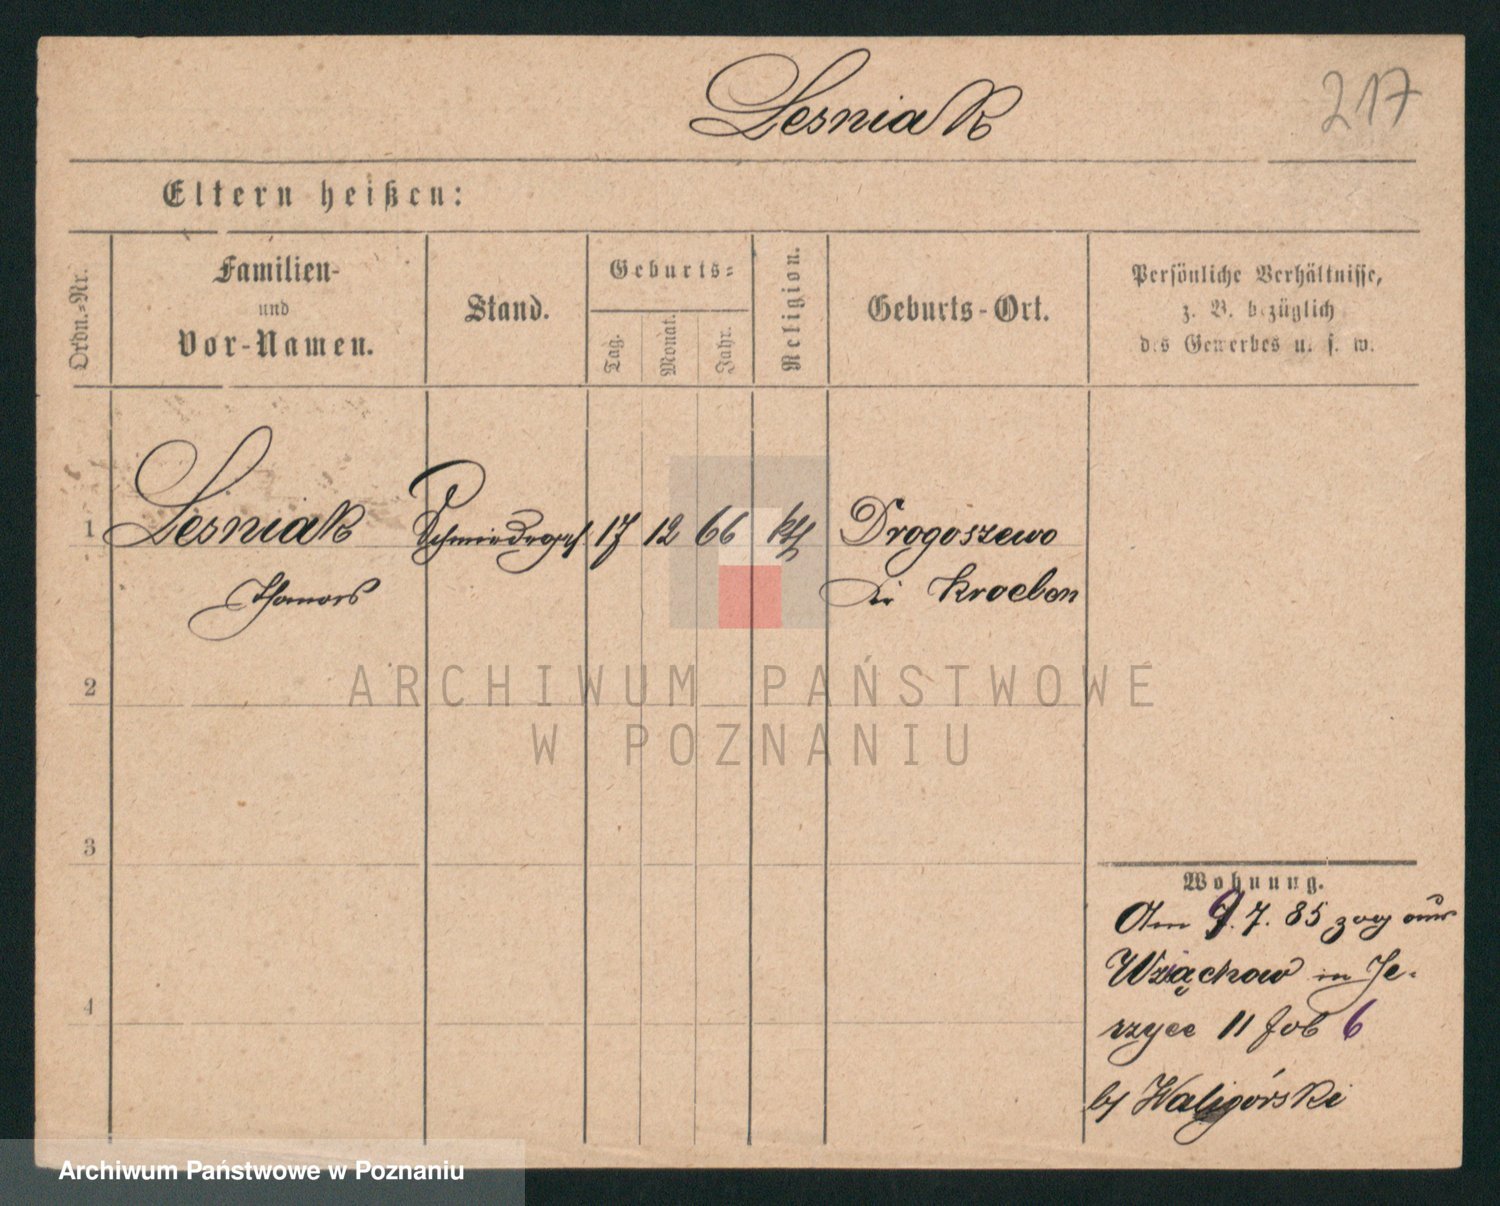 Lesniak
217
Eltern heißen:
Ordn.-Nr.
Familien-
und
Vor-Namen.
Stand.
Geburts-
Tag.
Monat.
Jahr.
Religion.
Geburts-Ort.
Persönliche Verhältnisse,
z. B. bezüglich
des Gewerbes u. s. w.
1 Leśniak Schmiedeges 17 12 66 kth Drogoszewo
Thomas Kr Kroeben
2
3
4
Wohnung.
Am 9. 7. 85 zog aus
Wziąchow in Je-
rzyce 11 Job 6
by Waligórski
ARCHIWUM PAŃSTWOWE
W POZNANIU
Archiwum Państwowe w Poznaniu